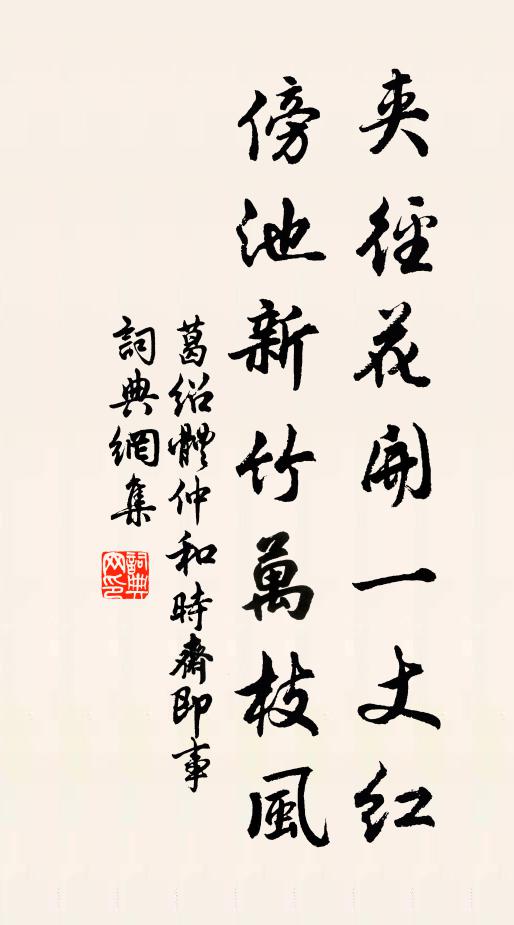 夹徑花開一丈紅
傍池新竹萬枝風
葛紹體仲和時齋即事
詞典網集
詞典
网印